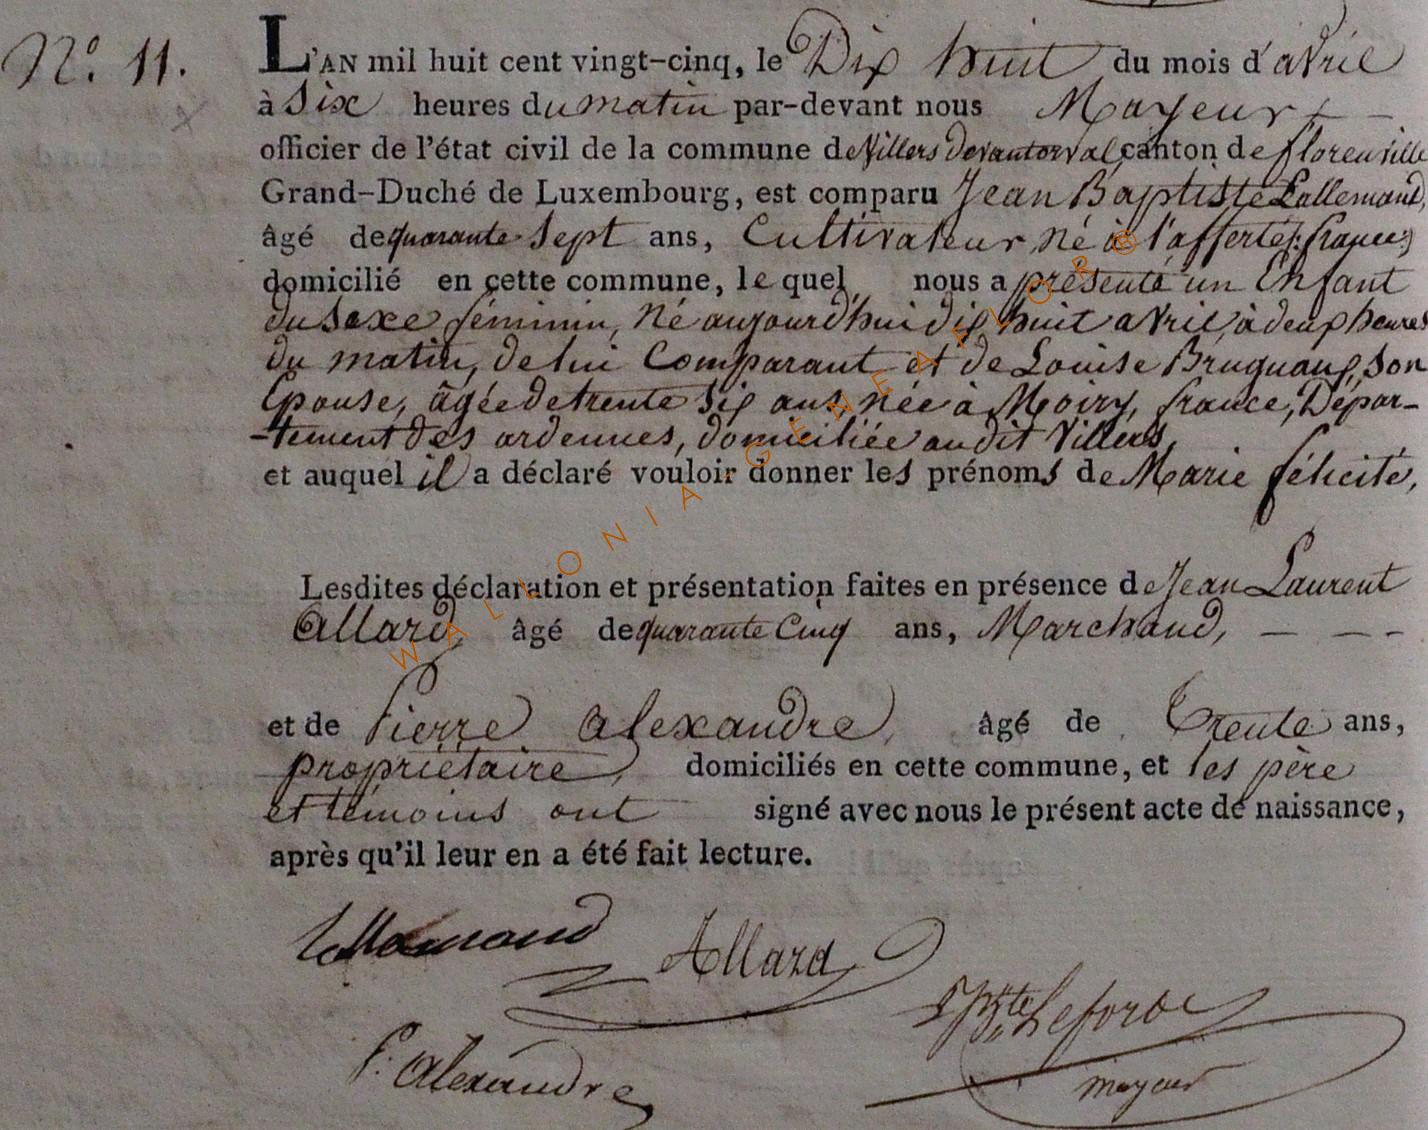 N.º 11.
L'AN mil huit cent vingt-cinq, le Dix huit du mois d'avril
à Six heures du matin par-devant nous Mayeur
officier de l'état civil de la commune de Villers devant orval, canton de florenville
Grand-Duché de Luxembourg, est comparu Jean Baptiste Lallemand,
âgé de quarante Sept ans, Cultivateur, né à l'afferté (france)
domicilié en cette commune, le quel nous a présenté un Enfant
du Sexe féminin, Né aujourd'hui dix huit avril à deux heures
du matin, de lui Comparant et de Louise Bruguaux, Son
Epouse, âgée de trente Six ans, née à Moiry, france, Dépar-
-tement des ardennes, domiciliée audit Villers,
et auquel il a déclaré vouloir donner les prénoms de Marie félicité,
Lesdites déclaration et présentation faites en présence de Jean Laurent
Allard, âgé de quarante Cinq ans, Marchand, — — -
et de Pierre alexandre, âgé de Trente ans,
propriétaire, domiciliés en cette commune, et les père
et témoins ont signé avec nous le présent acte de naissance,
après qu'il leur en a été fait lecture.
Lallemand Allard
Leforde
P. Alexandre mayeur
WALLONIA-GENEAFLOR®